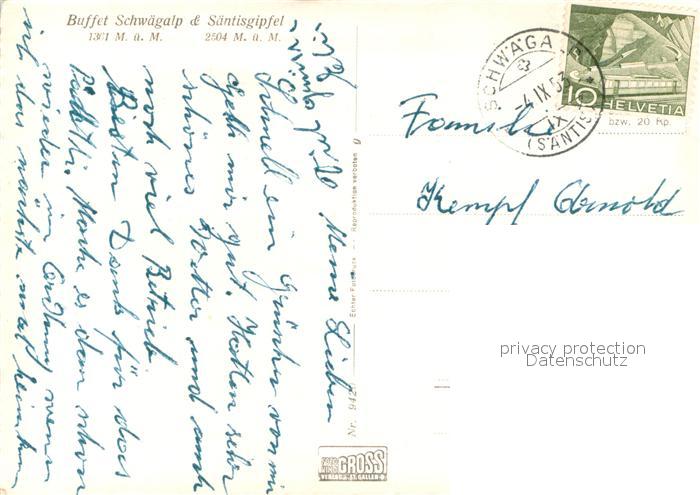 Buffet Schwägalp & Säntisgipfel
1361 M. ü. M. 2504 M. ü. M.
Meine Lieben
Schnell ein Grüsschen von mir
Geht mir gut. Hatten sehr
schönes Wetter und auch
noch viel Betrieb.
Besten Dank für das
Päckli. Mache es dann schon
wieder in Ordnung wenn
ich das nächste mal heim
Nr. 9426 Echter Fotodruck - Reproduktion verboten
FOTO GROSS
VERLAG ST. GALLEN
SCHWÄGALP
-4.IX.53
(SÄNTIS)
10 HELVETIA
bzw. 20 Rp.
Familie
Kempf Arnold
privacy protection
Datenschutz